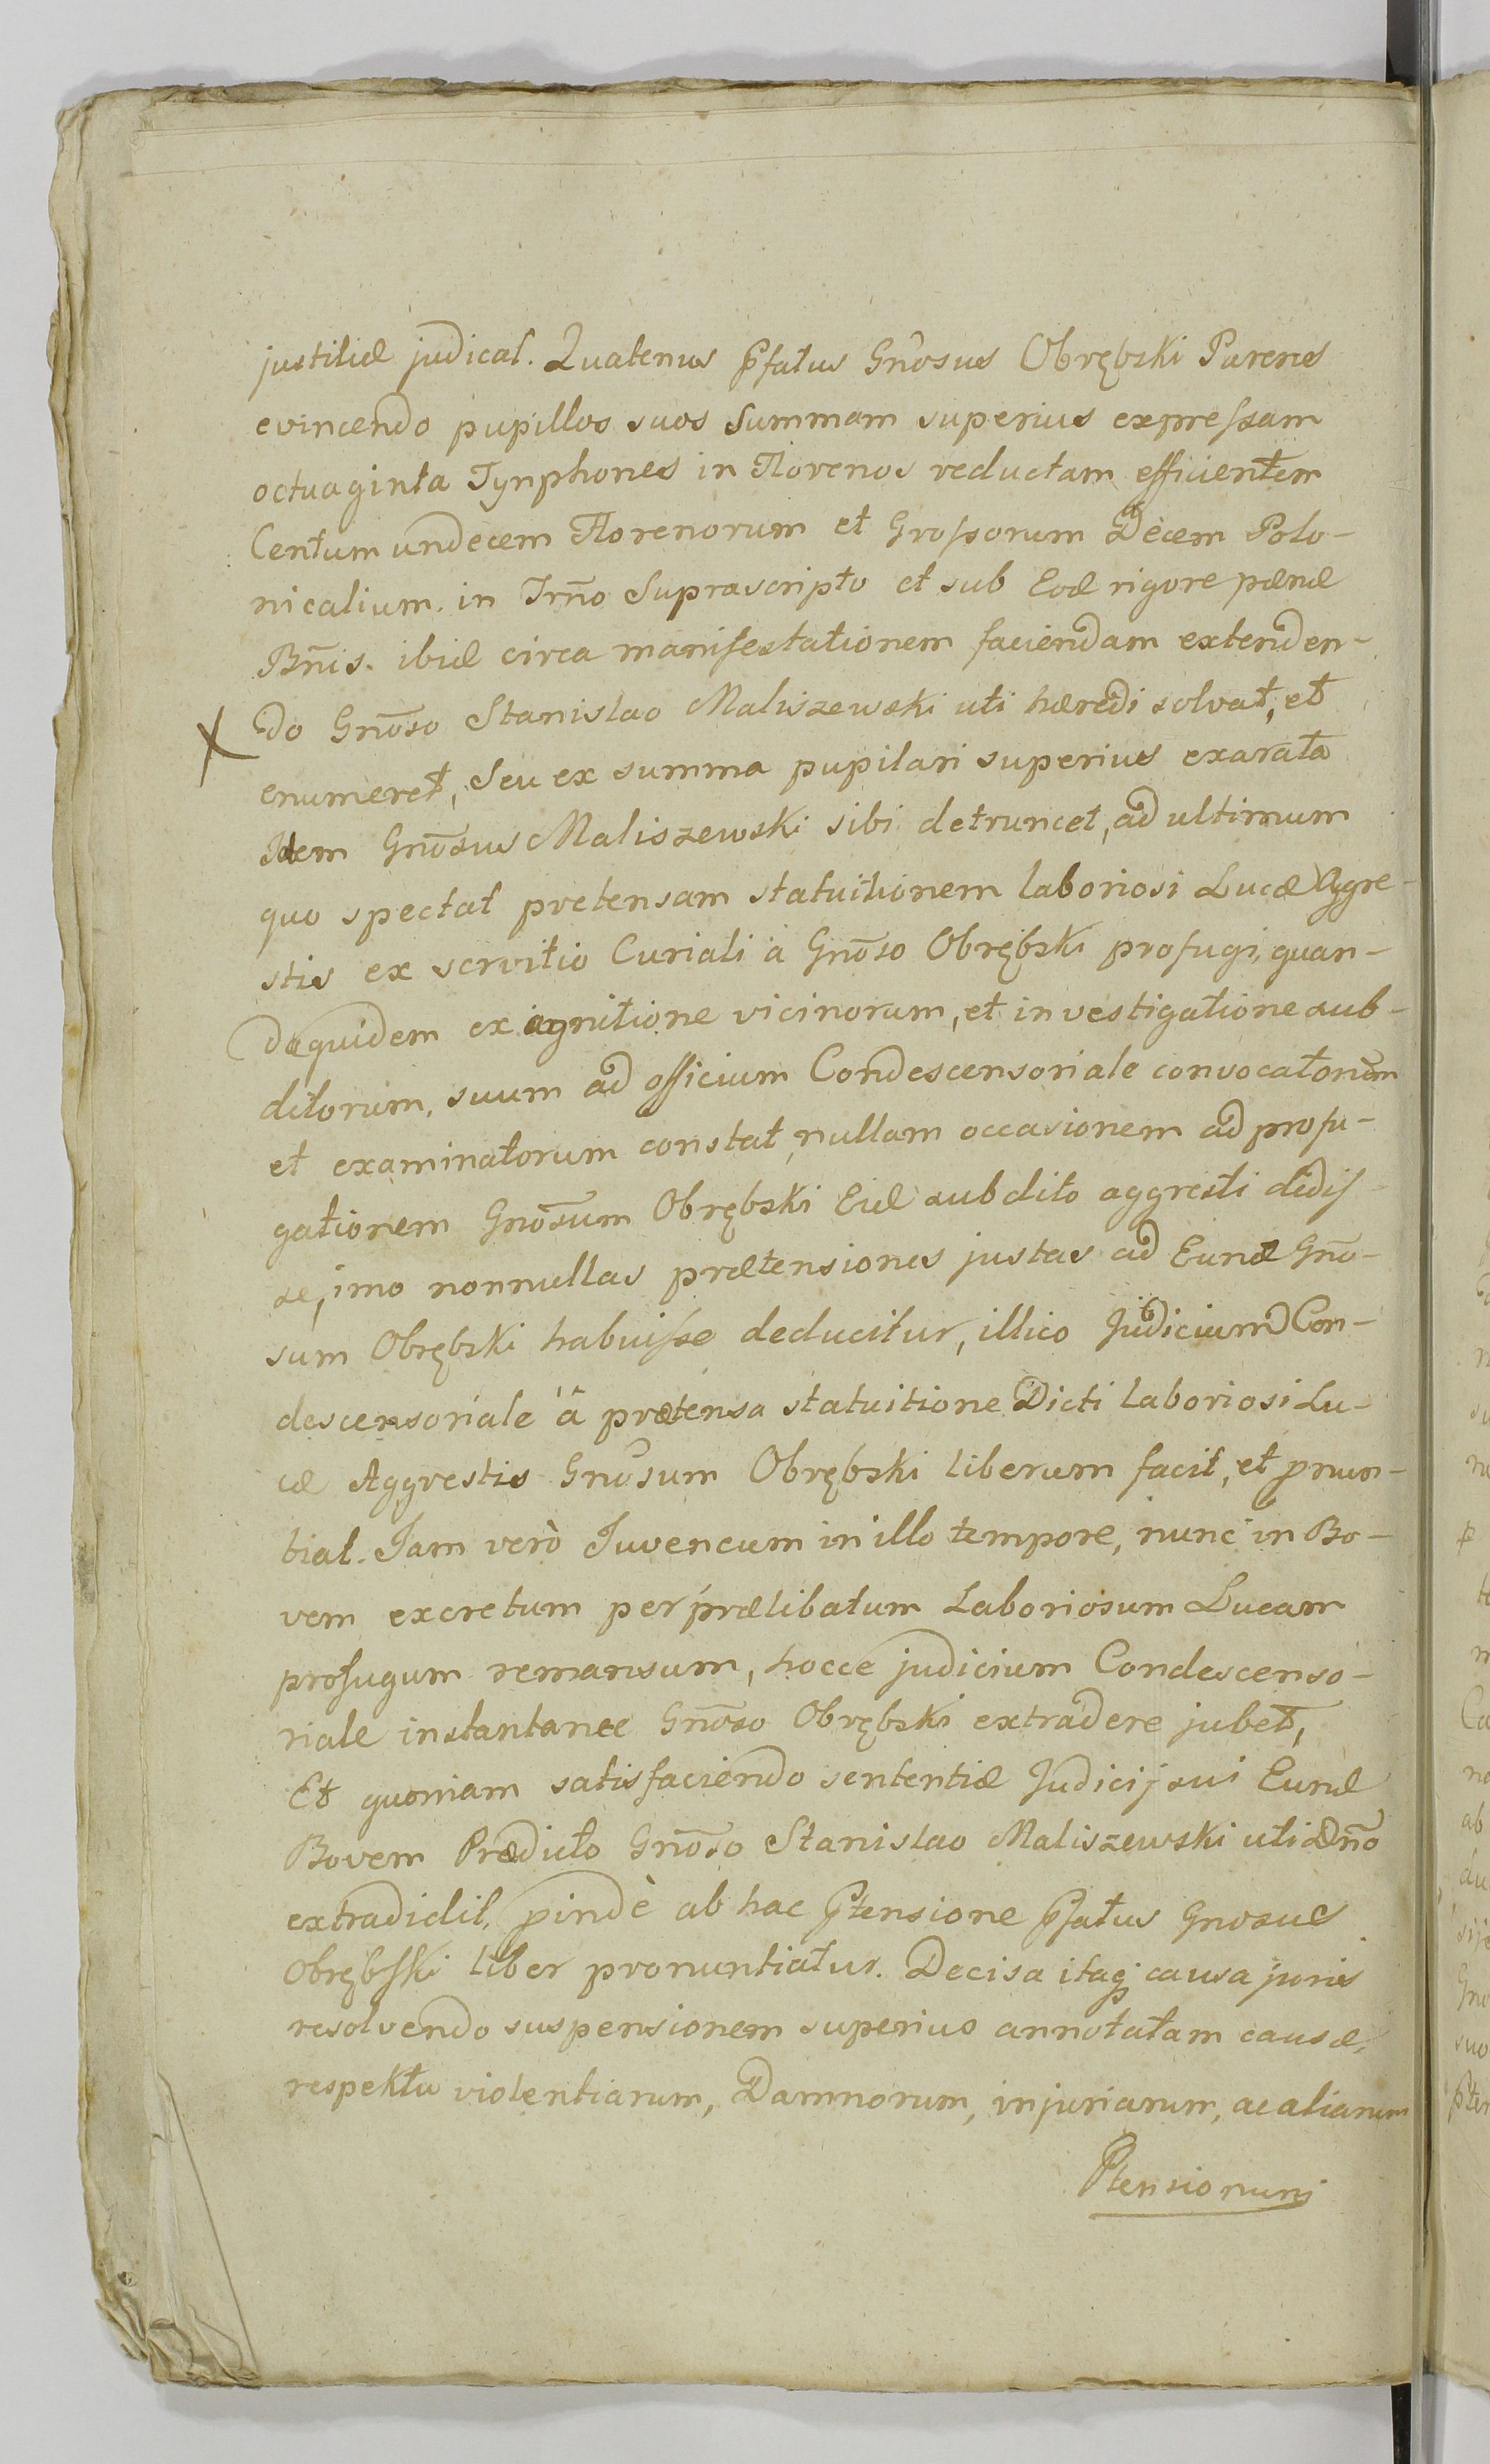 justitiæ judicat. Quatenus p̃fatus Gñosus Obrębski Parens
evincendo pupillos suos summam superius expressam
octuaginta Tynphones in Florenos reductam efficientem
Centum undecem Florenorum et Grossorum Decem Polo-
nicalium. in Trm̃o Suprascripto et sub Eod rigore pænæ
Bñis. ibid circa manifestationem faciendam extenden-
do Gnõso Stanislao Maliszewski uti hæredi solvat, et
enumeret, Seu ex summa pupilari superius exarata
Idem Gnõsus Maliszewski sibi detruncet, ad ultimum
quo spectat pretensam statuitionem laboriosi Lucæ Aggre-
stis ex servitio Curiali à Gnõso Obrębski profugi, quan-
doquidem ex agnitione vicinorum, et investigatione sub-
ditorum, suum ad officium Condescensoriale convocatorum
et examinatorum constat, nullam occasionem ad profu-
gationem Gnõsum Obrębski Eid subdito aggresti dedis-
se, imo nonnullas prætensiones justas ad Eund Gnõ-
sum Obrębski habuisse deducitur, illico Judicium Con-
descensoriale â prætensa statuitione Dicti laboriosi Lu-
cæ Aggrestis Gnõsum Obrębski liberum facit, et pnun-
tiat. Jam verò Juvencum in illo tempore, nunc in Bo-
vem excretum per prælibatum Laboriosum Lucam
profugum remansum, hocce judicium Condescenso-
riale instantanee Gnõso Obrębski extradere jubet,
Et quoniam satisfaciendo sententiæ Judicij sui Eund
Bovem Prædicto Gnõso Stanislao Maliszewski uti Dño
extradidit, pindè ab hac p̃tensione p̃fatus Gnosus
Obrębski liber pronuntiatur. Decisa itaq causa juris
resolvendo suspensionem superius annotatam causæ,
respektu violentiarum, Damnorum, injuriarum, ac aliarum
Ptensionum